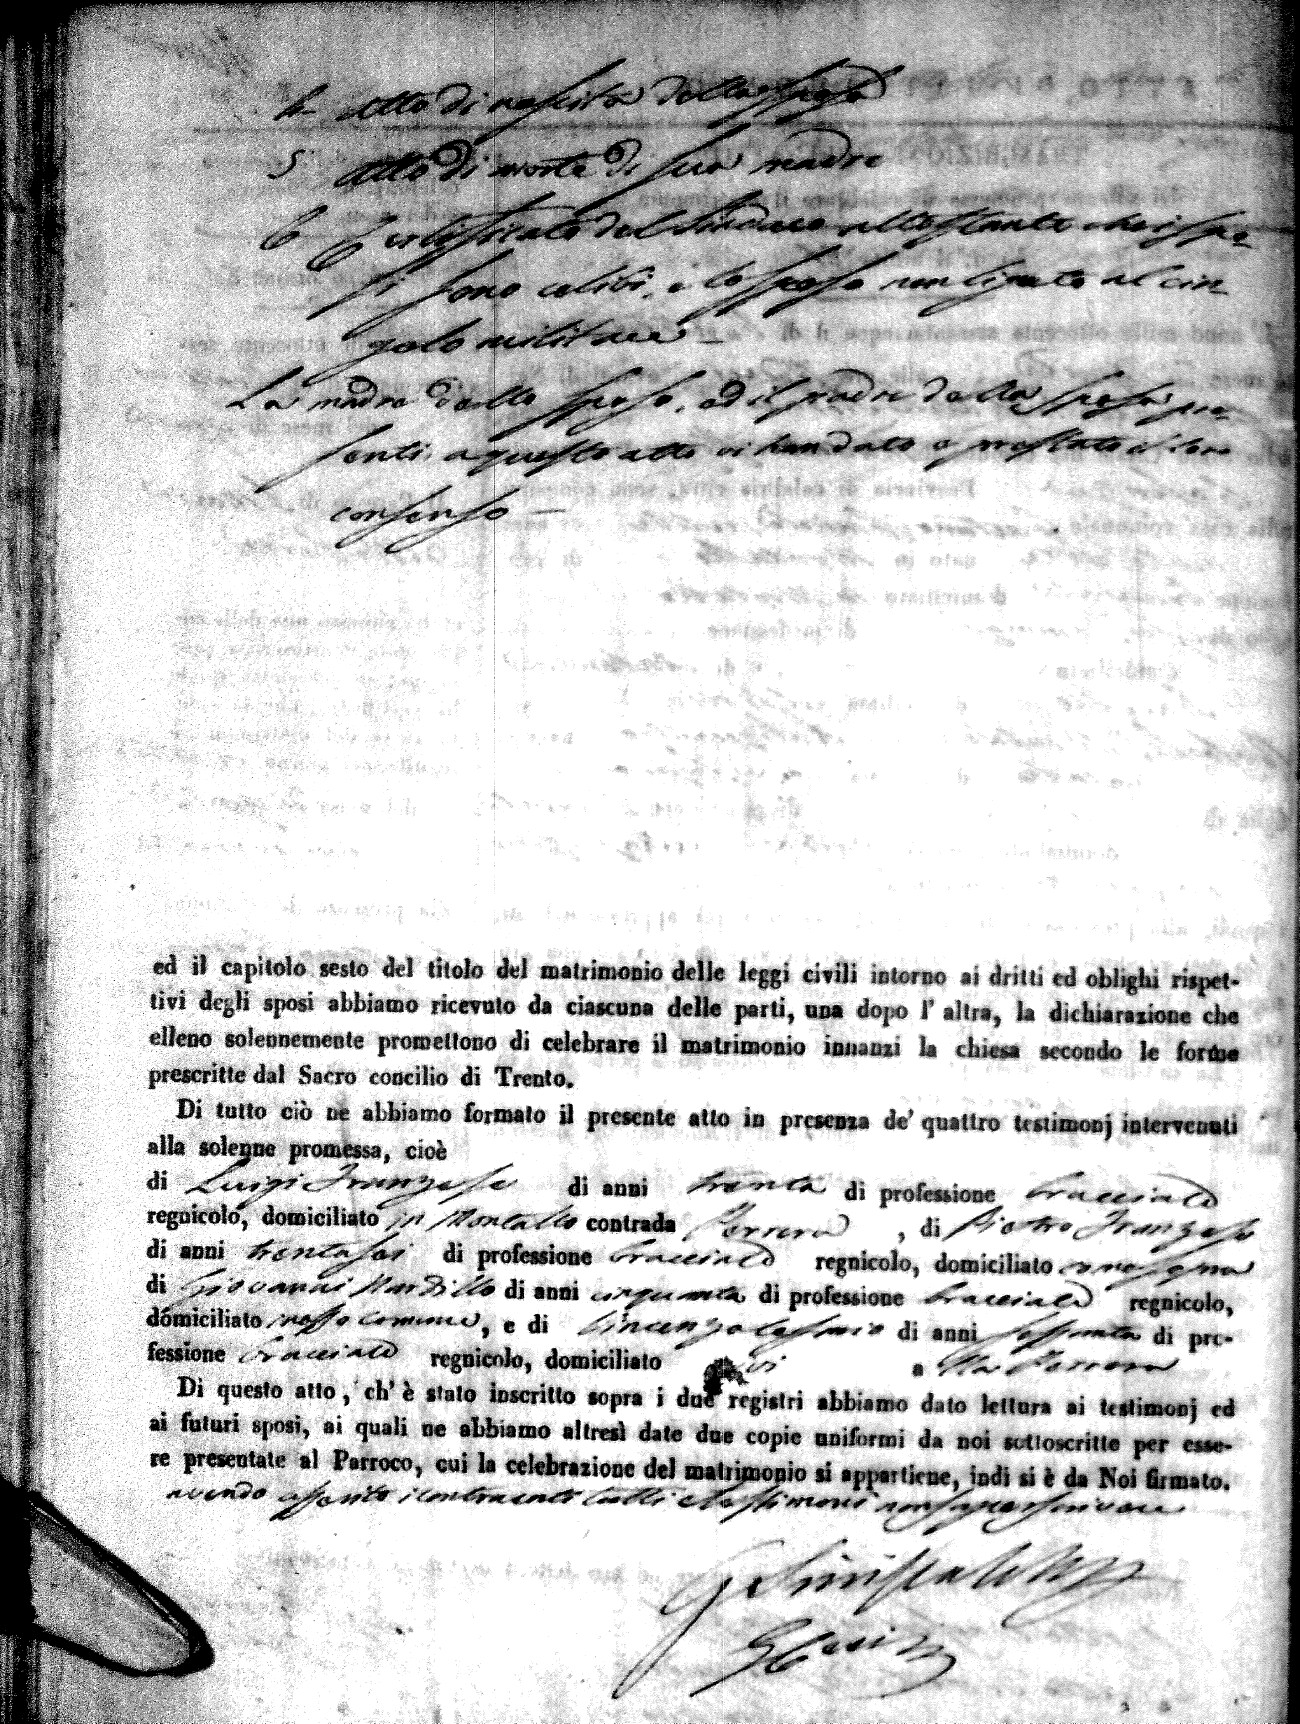 4. Atto di nascita della sposa
5 Atto di morte di sua madre
6 Certificato del Sindaco attestante che i spo-
si sono celibi, e lo sposo non ligato al cin-
golo militare –
La madre dello sposo, ed il padre della sposa pre-
senti a questo atto vi han dato e prestato il loro
consenso –
ed il capitolo sesto del titolo del matrimonio delle leggi civili intorno ai dritti ed oblighi rispet-
tivi degli sposi abbiamo ricevuto da ciascuna delle parti, una dopo l' altra, la dichiarazione che
elleno solennemente promettono di celebrare il matrimonio innanzi la chiesa secondo le forme
prescritte dal Sacro concilio di Trento.
Di tutto ciò ne abbiamo formato il presente atto in presenza de' quattro testimonj intervenuti
alla solenne promessa, cioè
di Luigi Franzese di anni trenta di professione bracciale
regnicolo, domiciliato in Montalto contrada Parrera , di Pietro Franzese
di anni trentasei di professione bracciale regnicolo, domiciliato
di Giovanni Nardillo di anni cinquanta di professione bracciale regnicolo,
domiciliato stesso comune, e di Vincenzo di anni sessanta di pro-
fessione bracciale regnicolo, domiciliato ivi a alla Parrera
Di questo atto, ch' è stato inscritto sopra i due registri abbiamo dato lettura ai testimonj ed
ai futuri sposi, ai quali ne abbiamo altresì date due copie uniformi da noi sottoscritte per esse-
re presentate al Parroco, cui la celebrazione del matrimonio si appartiene, indi si è da Noi firmato.
avendo asserito i contraenti tutti e testimoni non saper scrivere